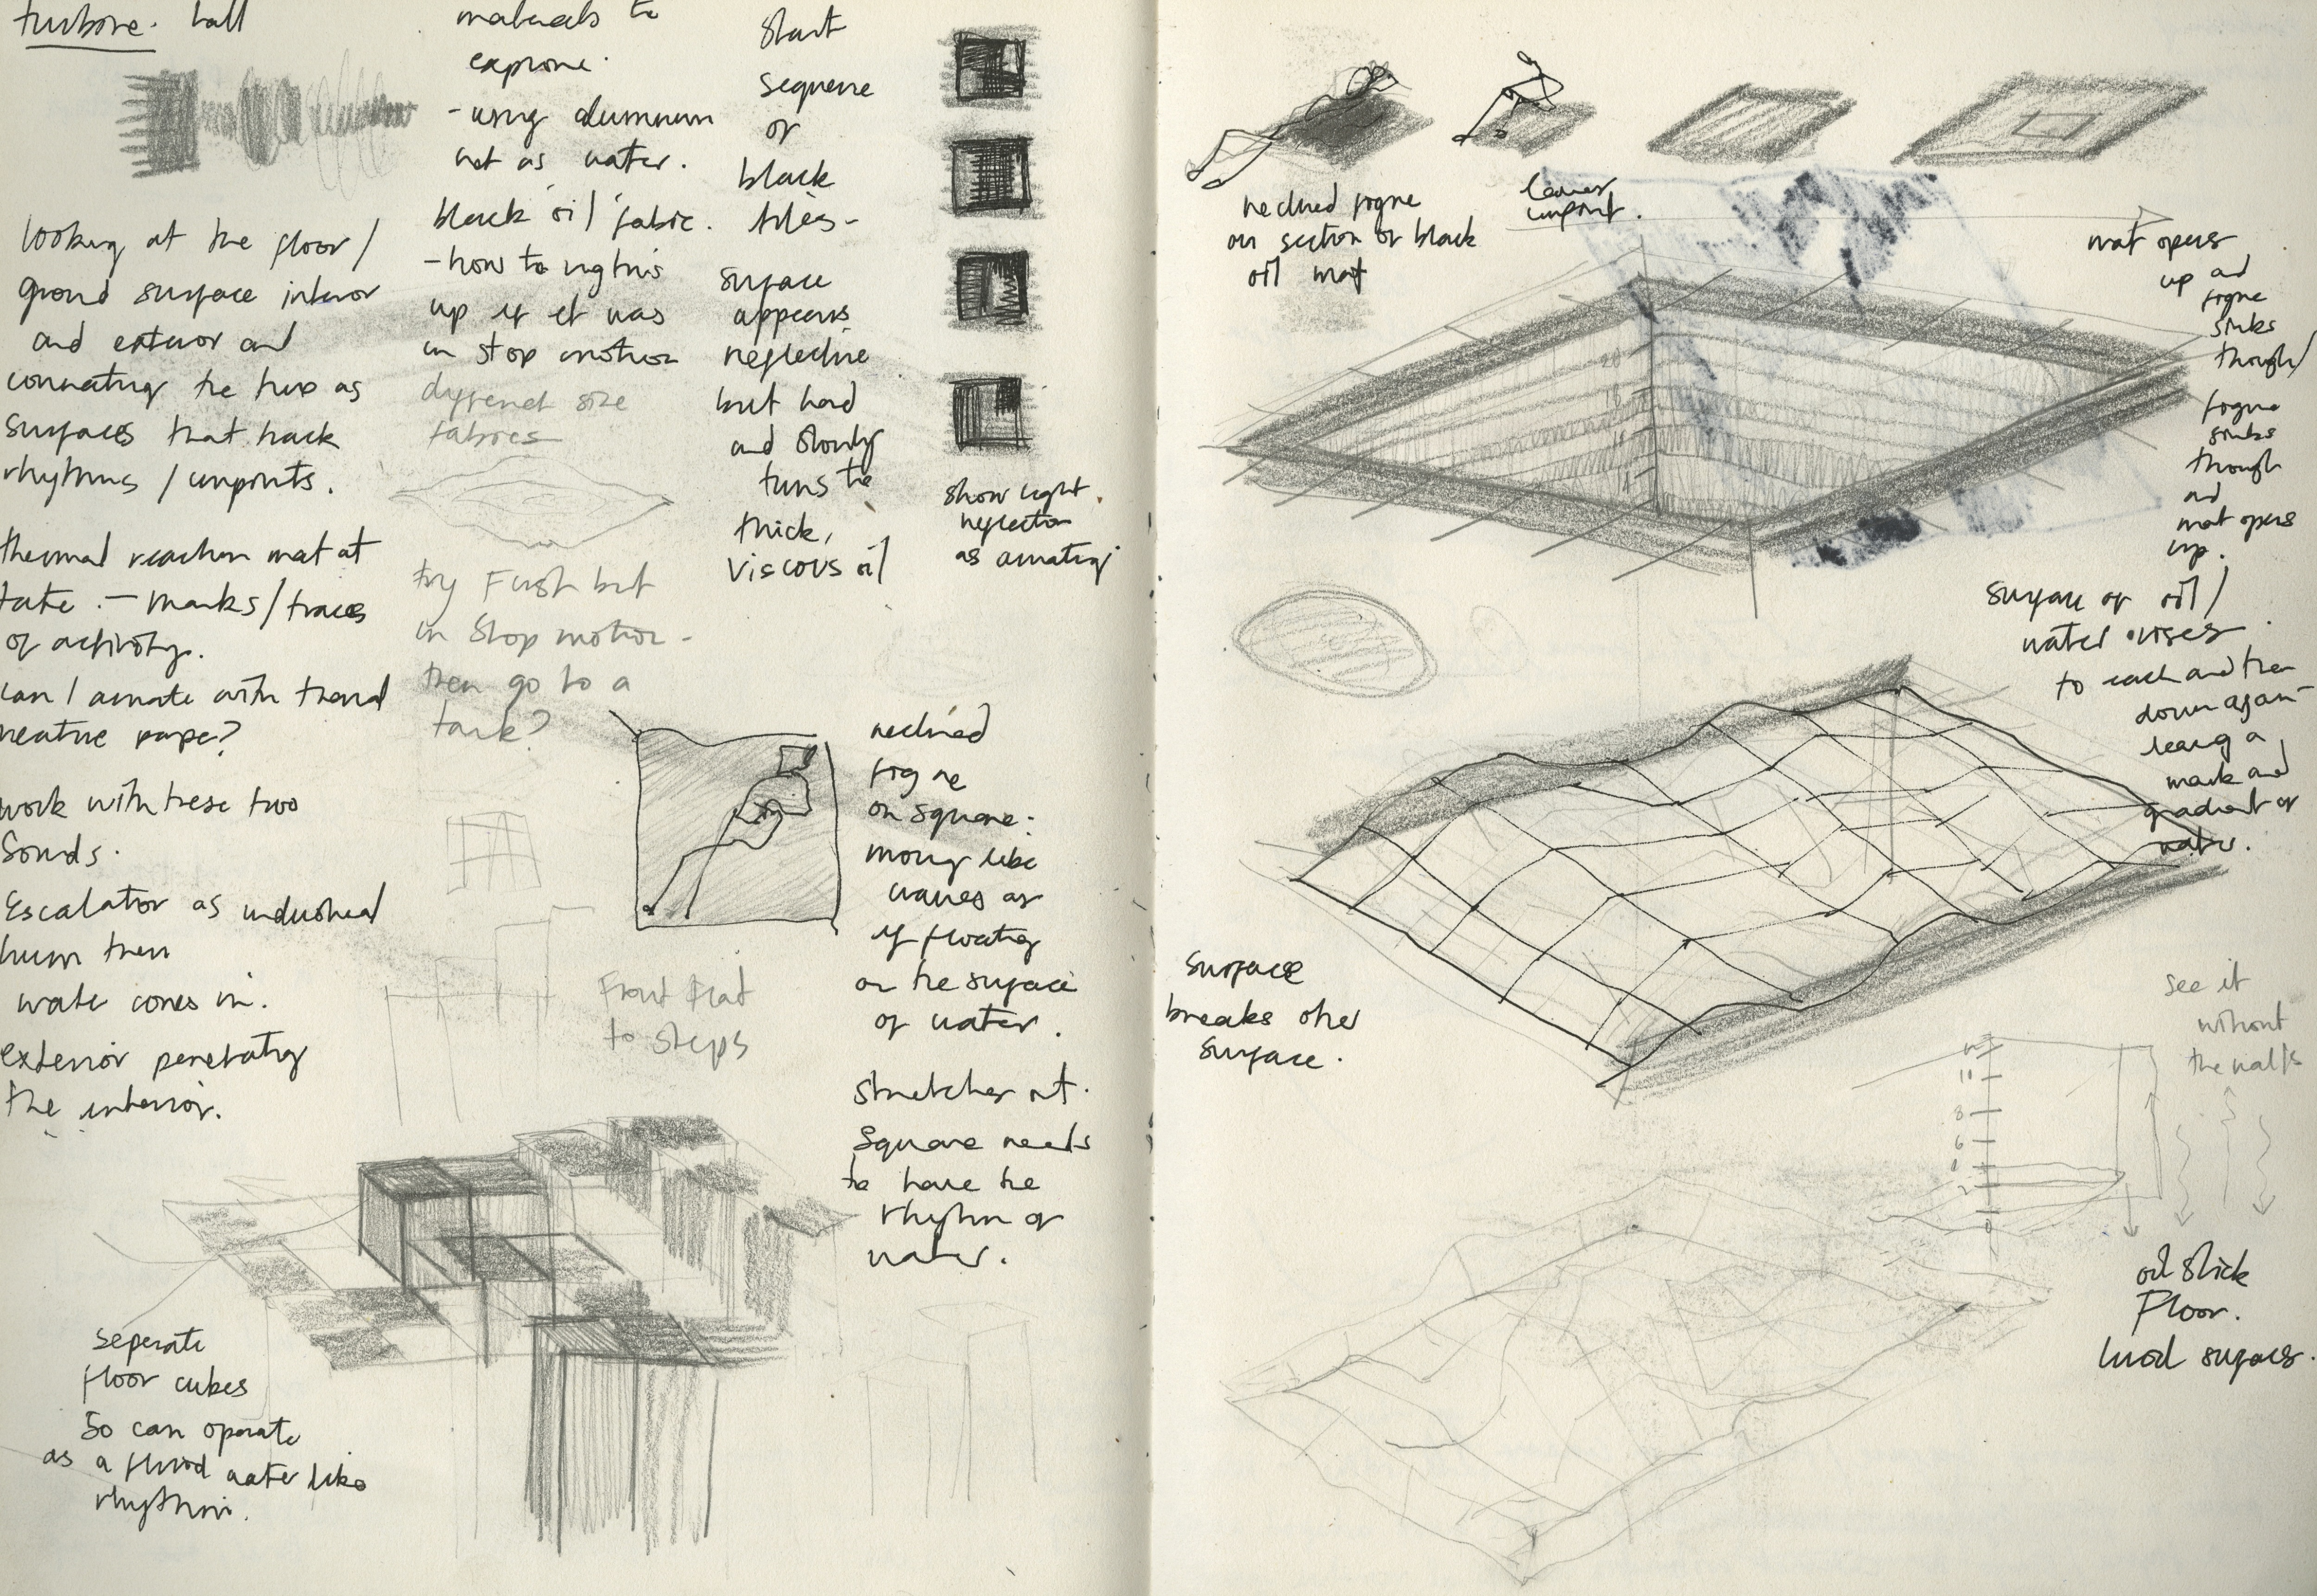 turbine. hall
looking at the floor /
ground surface interior
and exterior and
connecting the two as
surfaces that track
rhythms / imprints.
thermal reaction mat at
tate. - marks / traces
of activity.
can I animate with thermal
reactive paper?
work with these two
sounds.
Escalator as industrial
hum then
water comes in.
exterior penetrating
the interior.
seperate
floor cubes
so can operate
as a fluid water like
rhythm.
materials to
explore.
- using aluminum
not as water.
black oil / fabric.
- how to rig this
up if it was
in stop motion
different size
fabrics
try First but
in Stop motion -
then go to a
tank?
Front flat
to steps
Start
sequence
of
black
tiles -
surface
appears
reflective
but hard
and slowly
turns to
thick,
viscous oil
show light
reflection
as animating
reclined
figure
on square:
moving like
waves as
if floating
on the surface
of water.
stretches out.
Square needs
to have the
rhythm of
water.
reclined figure
on section of black
oil mat
leaves
imprint.
mat opens
up and
figure
sinks
through /
figure
sinks
through
and
mat opens
up.
20
surface of oil /
water rises
to each and then
down again
leaving a
mark and
gradient of
water.
Surface
breaks other
surface.
see it
without
the walls
8
6
2
0
oil slick
Floor.
liquid surfaces.